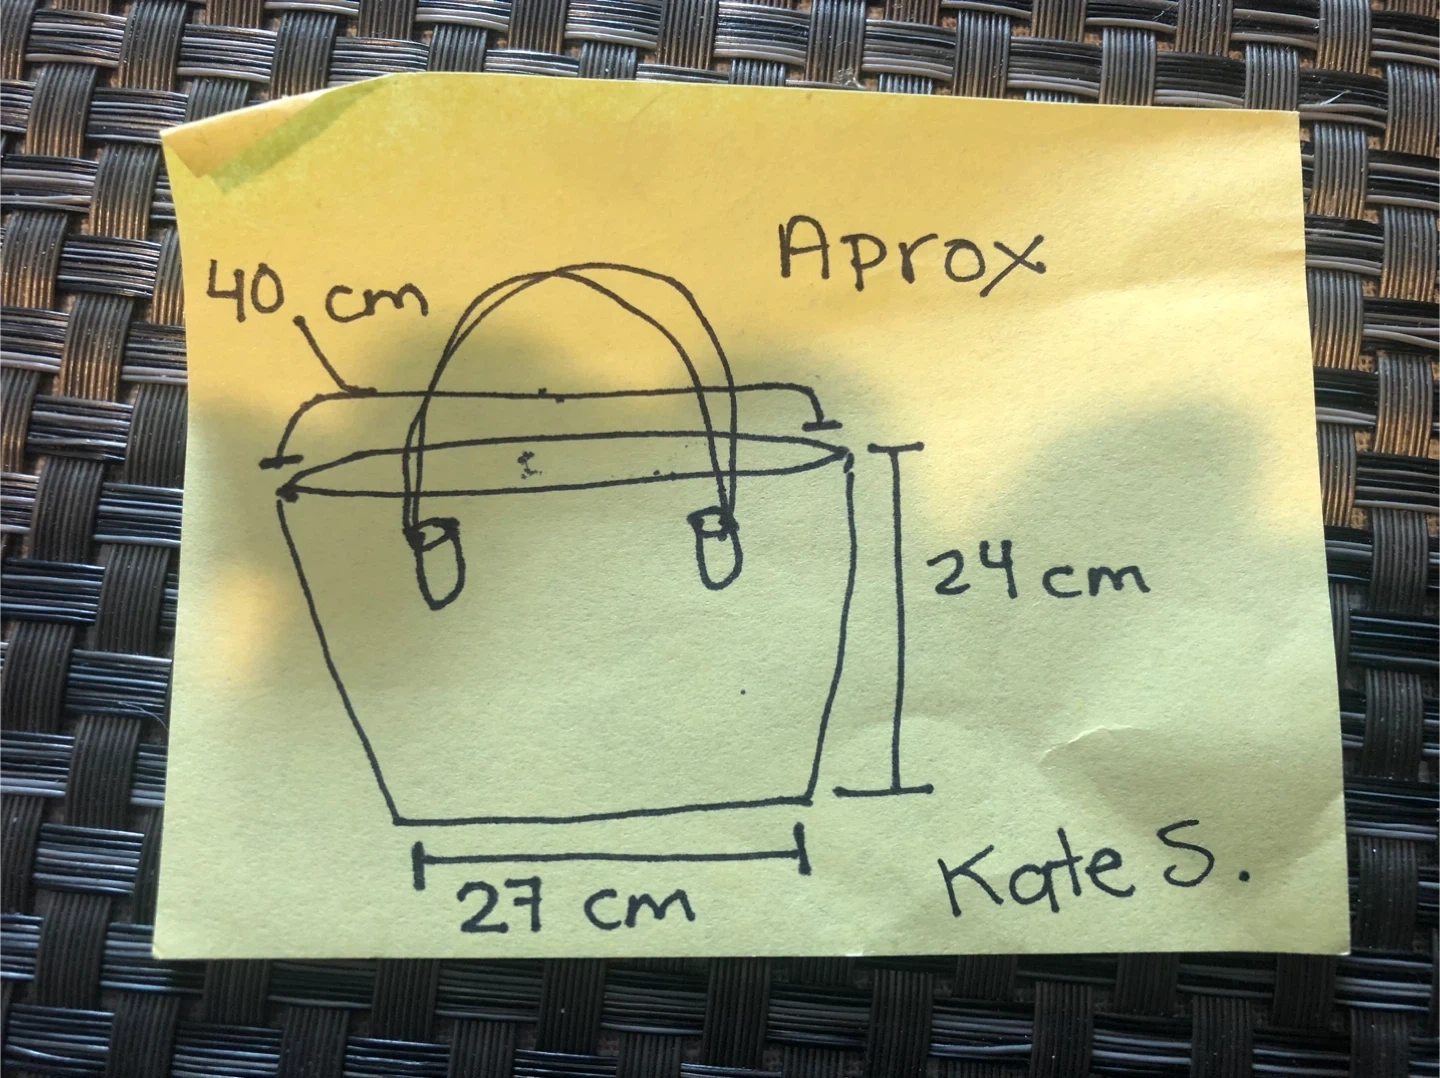 Aprox
40 cm
24 cm
27 cm
Kate S.